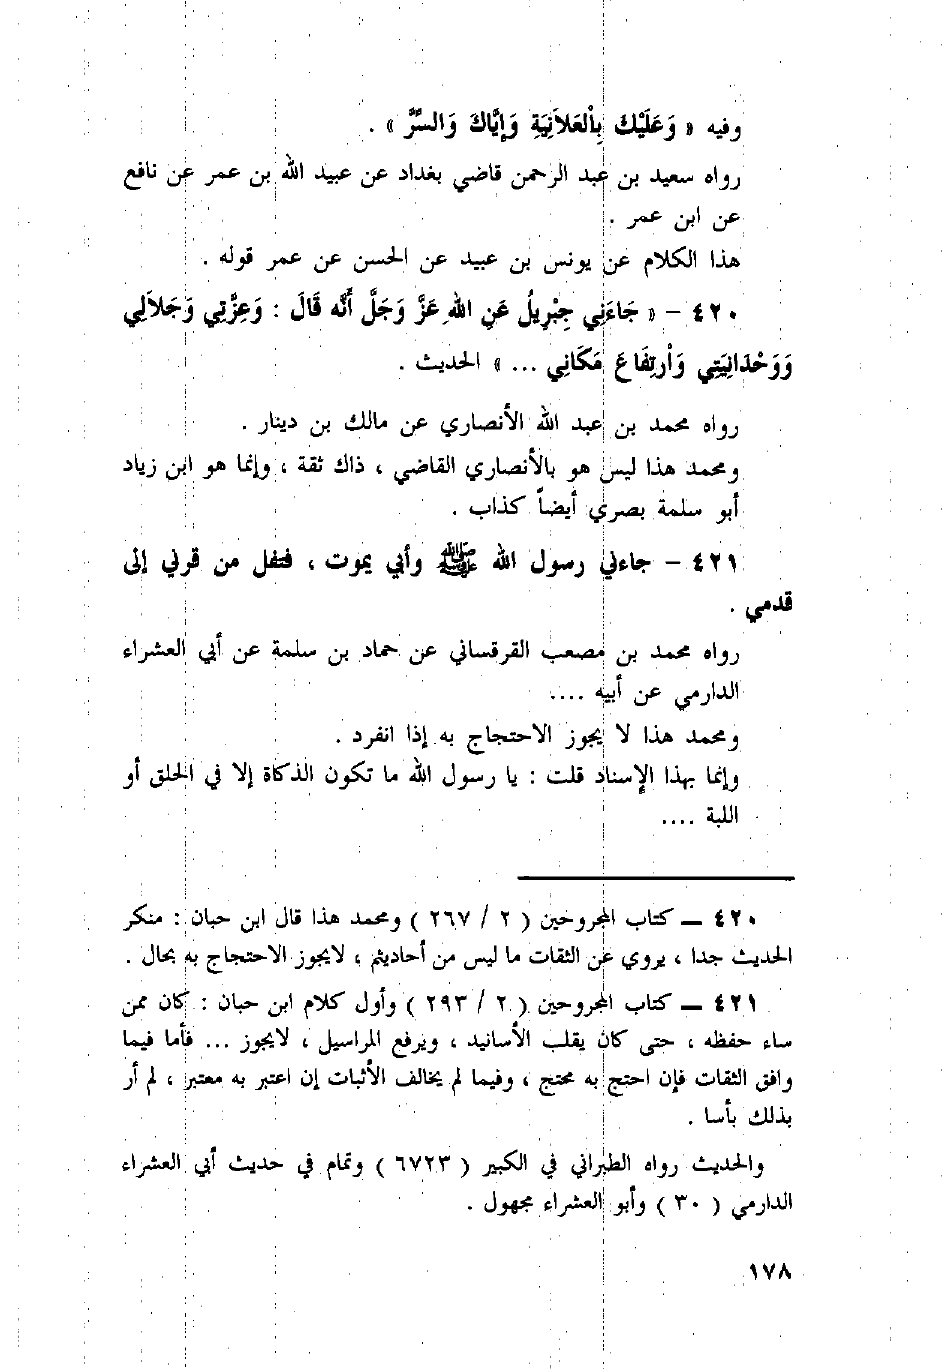 وفيه « وَعَلَيْكَ بِاْلعَلاَنِيَةِ وَإيَّاكَ وَالسِّرَّ » .
رواه سعيد بن عبد الرحمن قاضي بغداد عن عبيد الله بن عمر عن نافع
عن ابن عمر .
هذا الكلام عن يونس بن عبيد عن الحسن عن عمر قوله .
٤٢٠ – « جَاءَنِي جِبْرِيلُ عَنِ اللهِ عَزَّ وَجَلَّ أَنَّه قَالَ : وَعِزَّتِي وَجَلاَلِي
وَوَحْدَانِيَتِي وَاْرتِفَاعَ مَكَانِي ... » الحديث .
رواه محمد بن عبد الله الأنصاري عن مالك بن دينار .
ومحمد هذا ليس هو بالأنصاري القاضي ، ذاك ثقة ، وإنما هو ابن زياد
أبو سلمة بصري أيضاً كذاب .
٤٢١ – جاءني رسول الله ﷺ وأبي يموت ، فتفل من قرني إلى
قدمي .
رواه محمد بن مصعب القرقساني عن حماد بن سلمة عن أبي العشراء
الدارمي عن أبيه ....
ومحمد هذا لا يجوز الاحتجاج به إذا انفرد .
وإنما بهذا الإسناد قلت : يا رسول الله ما تكون الذكاة إلا في الحلق أو
اللبة ....
٤٢٠ ــ كتاب المجروحين ( ٢ / ٢٦٧ ) ومحمد هذا قال ابن حبان : منكر
الحديث جدا ، يروي عن الثقات ما ليس من أحاديثم ، لايجوز الاحتجاج به بحال .
٤٢١ ــ كتاب المجروحين ( ٢ / ٢٩٣ ) وأول كلام ابن حبان : كان ممن
ساء حفظه ، حتى كان يقلب الأسانيد ، ويرفع المراسيل ، لايجوز ... فأما فيما
وافق الثقات فإن احتج به محتج ، وفيما لم يخالف الأثبات إن اعتبر به معتبر ، لم أر
بذلك بأسا .
والحديث رواه الطبراني في الكبير ( ٦٧٢٣ ) وتمام في حديث أبي العشراء
الدارمي ( ٣٠ ) وأبو العشراء مجهول .
١٧٨